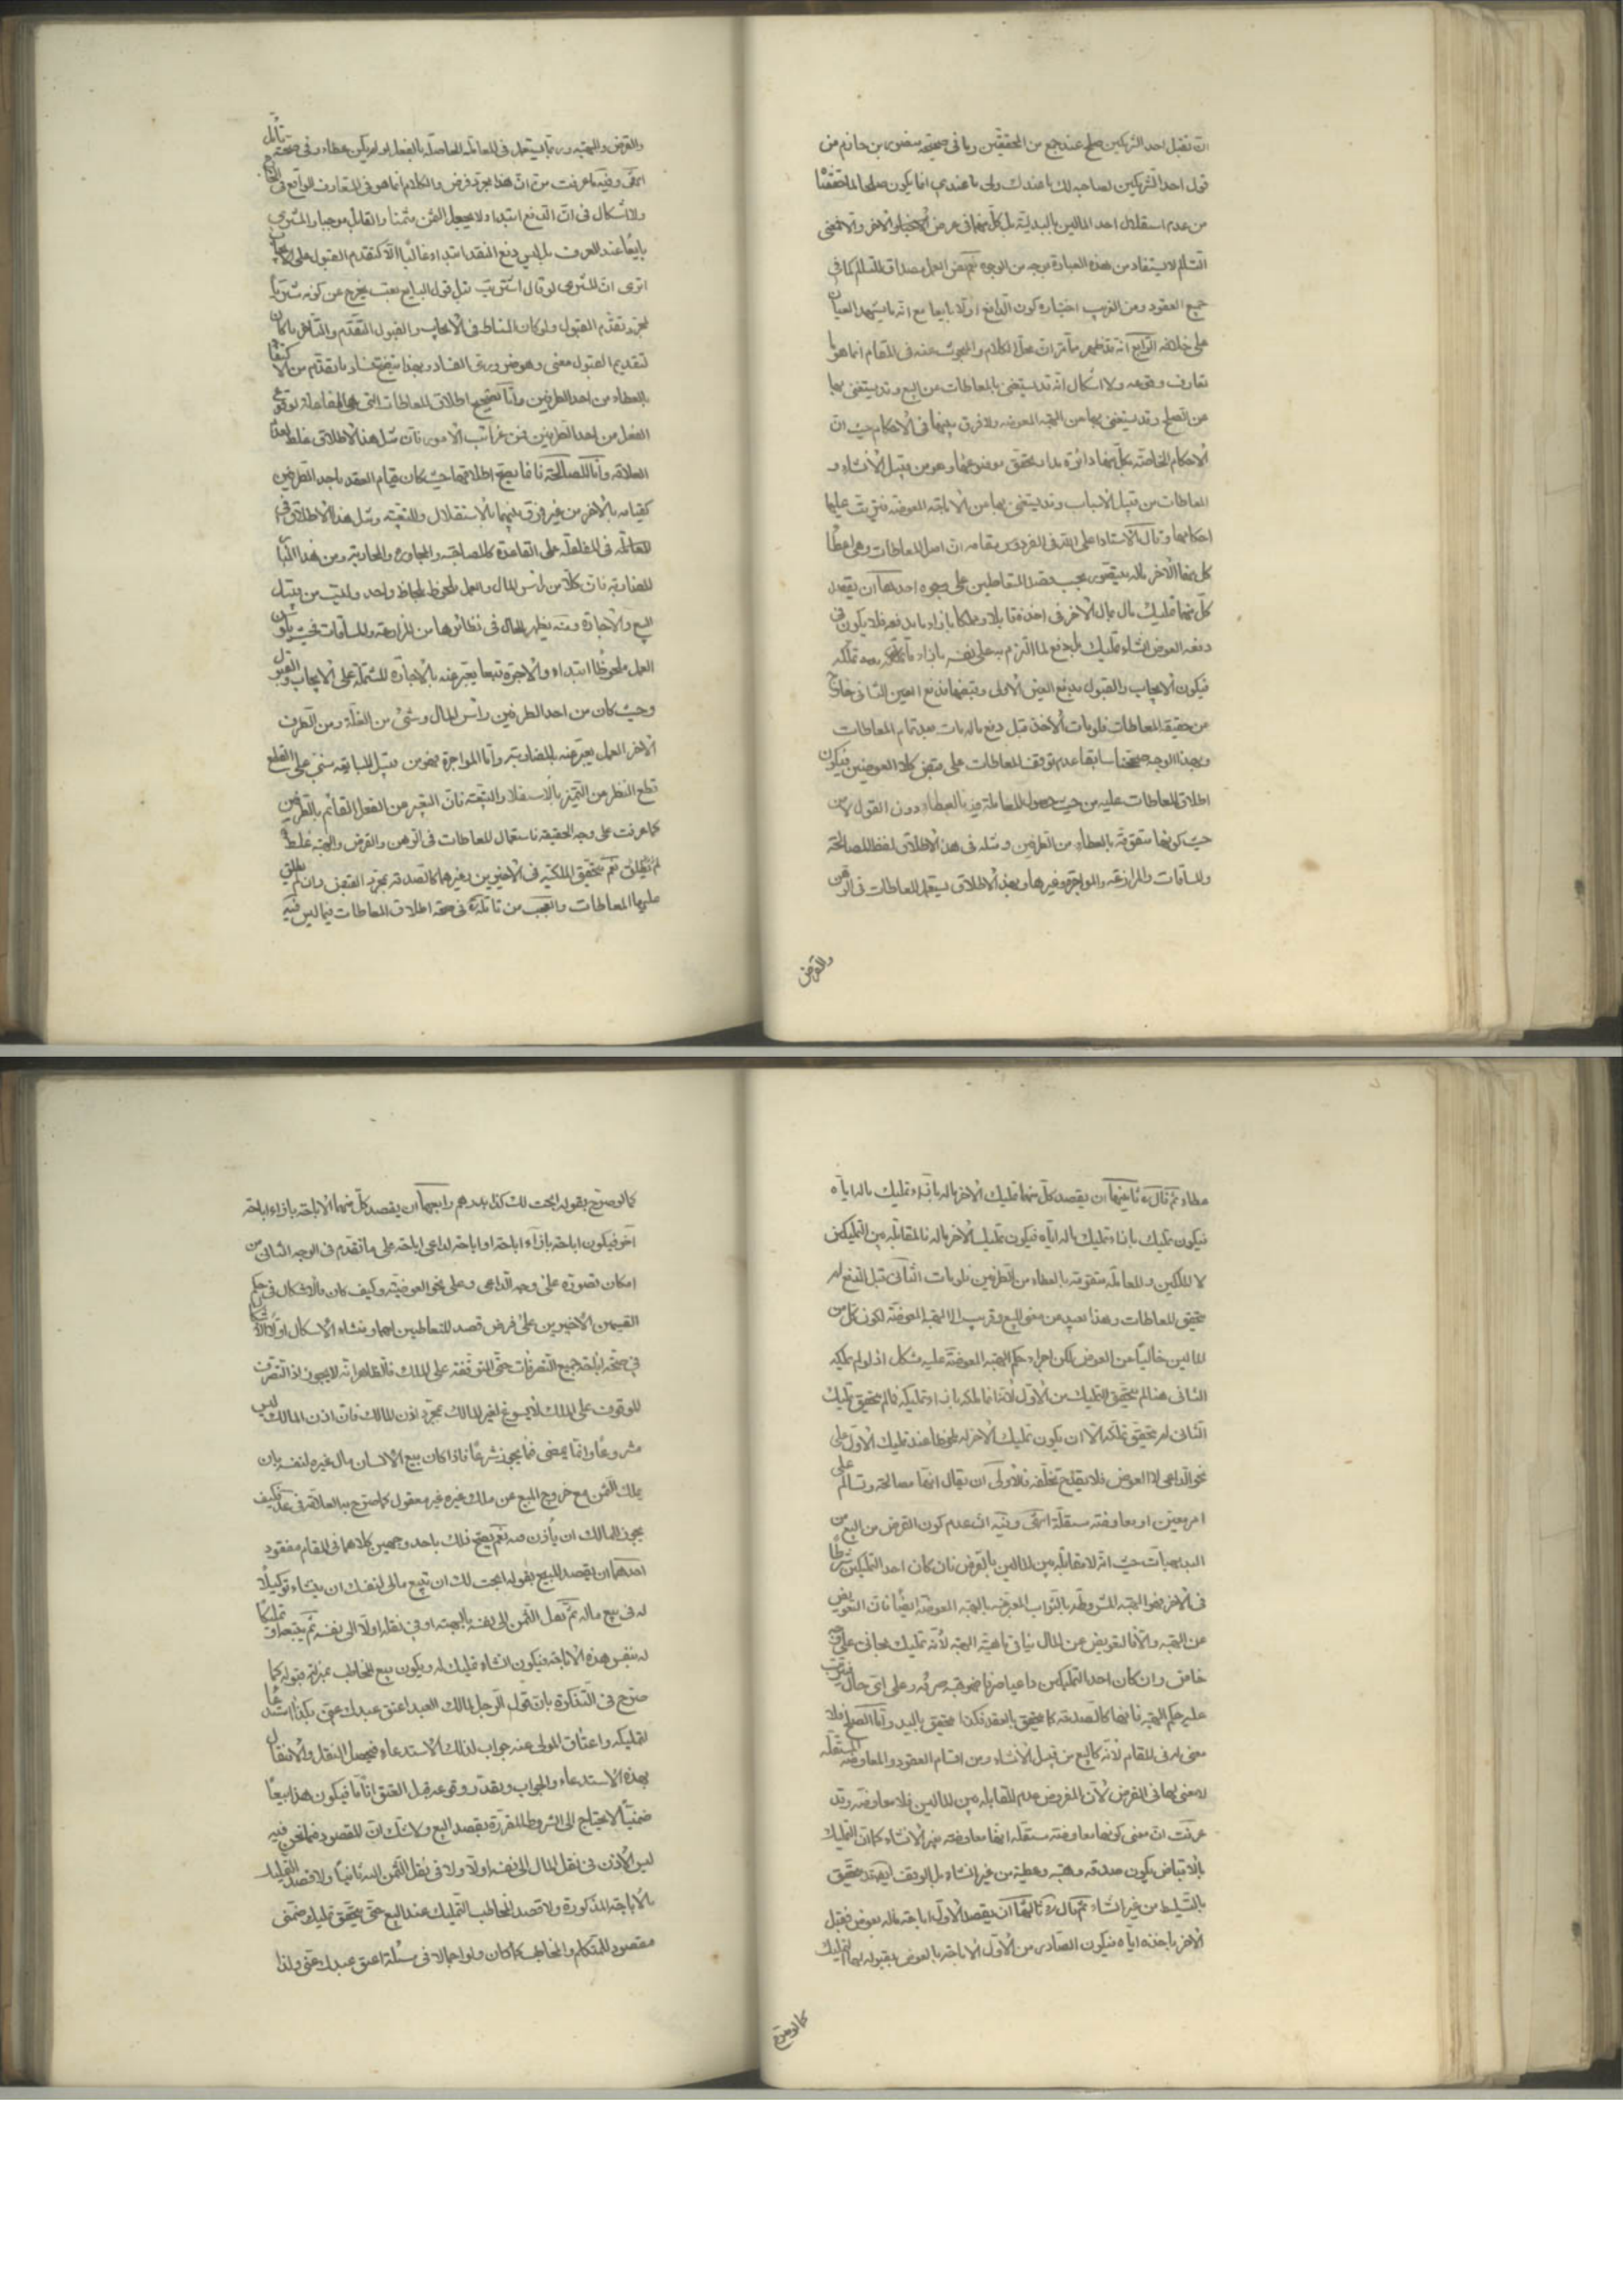 ان تقبل احد الشريكين صلح عند جمع من المحققين وما فى صحيحة منصور بن حازم من
قول احد الشريكين لصاحبه لك ما عندك ولى ما عندي انما يكون صلحا لما حققنا
من عدم استقلال احد المالين بالبدلية بل كل منهما فى عرض الاخر والا فمعنى
التسالم لا يستفاد من هذه العبارة بوجه من الوجوه نعم نفس العمل مصداق للتسالم كما فى
جميع العقود ومن الغريب اختياره كون الدافع اولا بايعا مع انه مما يشهد العيان
على خلافه الرابع انه قد ظهر مما مر ان محل الكلام والمبحوث عنه فى المقام انما هو ما
تعارف وقوعه ولا اشكال انه قد يستغنى بالمعاطات عن البيع وقد يستغنى بها
عن الصلح وقد يستغنى بها عن الهبة المعوضه ولا فرق بينها فى الاحكام حيث ان
الاحكام الخاصة بكل منها دائرة مدار تحقق موضوعها وهو من قبيل الانشاء و
المعاطات من قبيل الاسباب وقد يستغنى بها عن الاباحة المعوضة فيترتب عليها
احكامها وقال الاستاد اعلى الله فى الفردوس مقامه ان اصل المعاطات وهى اعطاء
كل منهما الاخر ماله يتصور بحسب قصد المتعاطيين على وجوه احدها ان يقصد
كل منهما تمليك مال بمال الاخر فى اخذه قابلا ومملكا بازاء ما يدفعه فلا يكون فى
دفعه العوض انشاء تمليك بل دفع لما التزم به على نفسه بازاء ما تملكه
فيكون الايجاب والقبول بدفع العين الاولى وقبضها فدفع العين الثانى خارج
عن حقيقة المعاطات فلو مات الاخذ قبل دفع ماله مات بعد تمام المعاطات
وبهذا الوجه صححنا سابقا عدم توقف المعاطات على قبض كلا العوضين فيكون
اطلاق المعاطات عليه من حيث حصول المعاملة فيه بالعطاء دون القول لا من
حيث كونها متقومة بالعطاء من الطرفين ومثله فى هذا الاطلاق لفظ المصالحة
والمساقات والمزارعة والمواجرة وغيرها وبهذا الاطلاق يستعمل المعاطات فى الرهن
والقرض
والقرض والهبة وربما يستعمل فى المعاملة الحاصلة بالفعل ولو لم يكن عطاء وفى صحته تامل
انتهى وفيه ما عرفت من ان هذا مجرد فرض والكلام انما هو فى المتعارف الواقع فى الخارج
ولا اشكال فى ان الدفع ابتداء لا يجعل الثمن مثمنا والقابل موجبا والمشترى
بايعا عند العرف بل ليس دفع النقد ابتداء غالبا الا كتقدم القبول على الايجاب
اترى ان المشترى لو قال اشتريت قبل قول البايع بعت يخرج عن كونه مشتريا
لمجرد تقدم القبول ولو كان المناط فى الايجاب والقبول التقدم والتاخر ما كان
لتقديم القبول معنى وهو ضرورى الفساد وبهذا يتضح فساد ما تقدم من الاكتفاء
بالعطاء من احد الطرفين واما تصحيح اطلاق المعاطات التى هى المفاعلة لوقوع
الفعل من احد الطرفين فمن غرائب الامور فان مثل هذا الاطلاق غلط لعدم
العلاقة واما المصالحة فانما يصح اطلاقها حيث كان قيام العقد باحد الطرفين
كقيامه بالاخر من غير فرق بينهما بالاستقلال والتبعية ومثل هذا الاطلاق فى
المعاملة فى المفاعلة على القاعدة كالمصاحبة والمجاورة والمحاربة ومن هذا الباب
المضاربة فان كلا من راس المال والعمل ملحوظ بلحاظ واحد وليست من قبيل
البيع والاجارة ومنه يظهر الحال فى نظائرها من المزارعة والمساقات فحيث يكون
العمل ملحوظا ابتداء والاجرة تبعا يعبر عنه بالاجارة المشتملة على الايجاب والقبول
وحيث كان من احد الطرفين راس المال وشئ من الغلة ومن الطرف
الاخر العمل يعبر عنه بالمضاربة واما المواجرة فهو من قبيل المبايعة مبنى على القطع
قطع النظر عن التميز بالاستقلال والتبعية فان التعبير عن الفعل القائم بالطرفين
كما عرفت على وجه الحقيقة فاستعمال المعاطات فى الرهن والقرض والهبة غلط
لم يطلق نعم تحقق الملكية فى الاخيرين وغيرهما كالصدقة بمجرد القبض وان لم يطلق
عليها المعاطات والعجب من تامله فى صحة اطلاق المعاطات فيما ليس فيه
عطاء ثم قال ره ثانيها ان يقصد كل منهما تمليك الاخر ماله بازاء تمليك ماله اياه
فيكون تمليك بازاء تمليك ماله اياه فيكون تمليك الاخر ماله فالمقابلة بين التمليكين
لا الملكين والمعاملة متقومة بالعطاء من الطرفين فلو مات الثانى قبل الدفع لم
يتحقق المعاطات وهذا بعيد عن معنى البيع وقريب الى الهبة المعوضة لكون كل من
المالين خاليا عن العوض لكن اجراء حكم الهبة المعوضة عليه مشكل اذ لو لم يملكه
الثانى هنا لم يتحقق التمليك من الاول لانه انما ملكه بازاء تمليكه فما لم يتحقق تمليك
الثانى لم يتحقق تملكه الا ان يكون تمليك الاخر له ملحوظا عند تمليك الاول على
نحو الداعى لا العوض فلا يقدح تخلفه فالاولى ان يقال انها مصالحة وتسالم على
امر معين او معاوضة مستقلة انتهى وفيه ان عدم كون القرض من البيع من
البديهيات حيث انه لا مقابلة بين المالين بالفرض فان كان احد التمليكين شرطا
فى الاخر فهو الهبة المشروطة بالثواب المعبر عنه بالهبة المعوضة ايضا فان التعويض
عن الهبة والا فالتعويض عن المال ينافى ماهية الهبة لانه تمليك مجانى على وجه
خاص وان كان احد التمليكين داعيا صرفا فهو هبة صرفه وعلى اى حال فيترتب
عليه حكم الهبة فانها كالصدقة كما يتحقق بالعقد فكذا يتحقق باليد واما الصلح فلا
معنى له فى المقام لانه كالبيع من قبيل الانشاء ومن اقسام العقود والمعاوضة المستقلة
لا معنى لها فى الفرض لان المفروض عدم المقابلة بين المالين فلا معاوضة وقد
عرفت ان معنى كونها معاوضة مستقلة انها معاوضة بغير الانشاء كما ان التمليك
بالاقباض يكون صدقة وهبة وعطية من غير انشاء بل الوقف ايضا قد يتحقق
بالتسليط من غير انشاء ثم قال ره ثالثها ان يقصد الاول اباحة ماله بعوض فيقبل
الاخر باخذه اياه فيكون الصادر من الاول الاباحة بالعوض وبقبوله لها التمليك
كما لو صرح
كما لو صرح بقوله ابحت لك كذا بدرهم رابعها ان يقصد كل منهما الاباحة بازاء اباحة
اخر فيكون اباحة بازاء اباحة او اباحة لداعى اباحة على ما تقدم فى الوجه الثانى من
امكان تصوره على وجه الداعى وعلى نحو العوضية وكيف كان فالاشكال فى حكم
القسمين الاخيرين على فرض قصد المتعاطيين لهما ومنشاء الاشكال اولا الاشكال
فى صحة اباحة جميع التصرفات حتى المتوقفة على الملك فالظاهر انه لا يجوز اذ التصرف
الموقوف على الملك لا يسوغ لغير المالك بمجرد اذن المالك فان اذن المالك ليس
مشروعا وانما يمضى فيما يجوز شرعا فاذا كان بيع الانسان مال غيره لنفسه بان
يملك الثمن مع خروج المبيع عن ملك غيره غير معقول كما صرح به العلامة فى عد فكيف
يجوز للمالك ان ياذن فيه نعم يصح ذلك باحد وجهين كلاهما فى المقام مفقود
احدهما ان يقصد المبيح بقوله ابحت لك ان تبيع مالى لنفسك ان ينشاء توكيلا
له فى بيع ماله ثم نقل الثمن الى نفسه بالهبة او فى نقله اولا الى نفسه ثم بيعه او تمليكا
له بنفس هذه الاباحة فيكون انشاء تمليك له ويكون بيع المخاطب بمنزلة قبوله كما
صرح فى التذكرة بان قول الرجل لمالك العبد اعتق عبدك عنى بكذا استدعاء
لتمليكه واعتاق المولى عنه جواب لذلك الاستدعاء فيحصل النقل والانتقال
بهذه الاستدعاء والجواب ويقدر وقوعه قبل العتق آنا ما فيكون هذا بيعا
ضمنيا لا يحتاج الى الشروط المقررة بقصد البيع ولا شك ان المقصود فيما نحن فيه
ليس الاذن فى نقل المال الى نفسه اولا ولا فى نقل الثمن اليه ثانيا ولا قصد التمليك
بالاباحة المذكورة ولا قصد المخاطب التمليك عند البيع حتى يتحقق تمليك ضمنى
مقصود للمتكلم والمخاطب كما كان ولو اجمالا فى مسئلة اعتق عبدك عنى ولذا